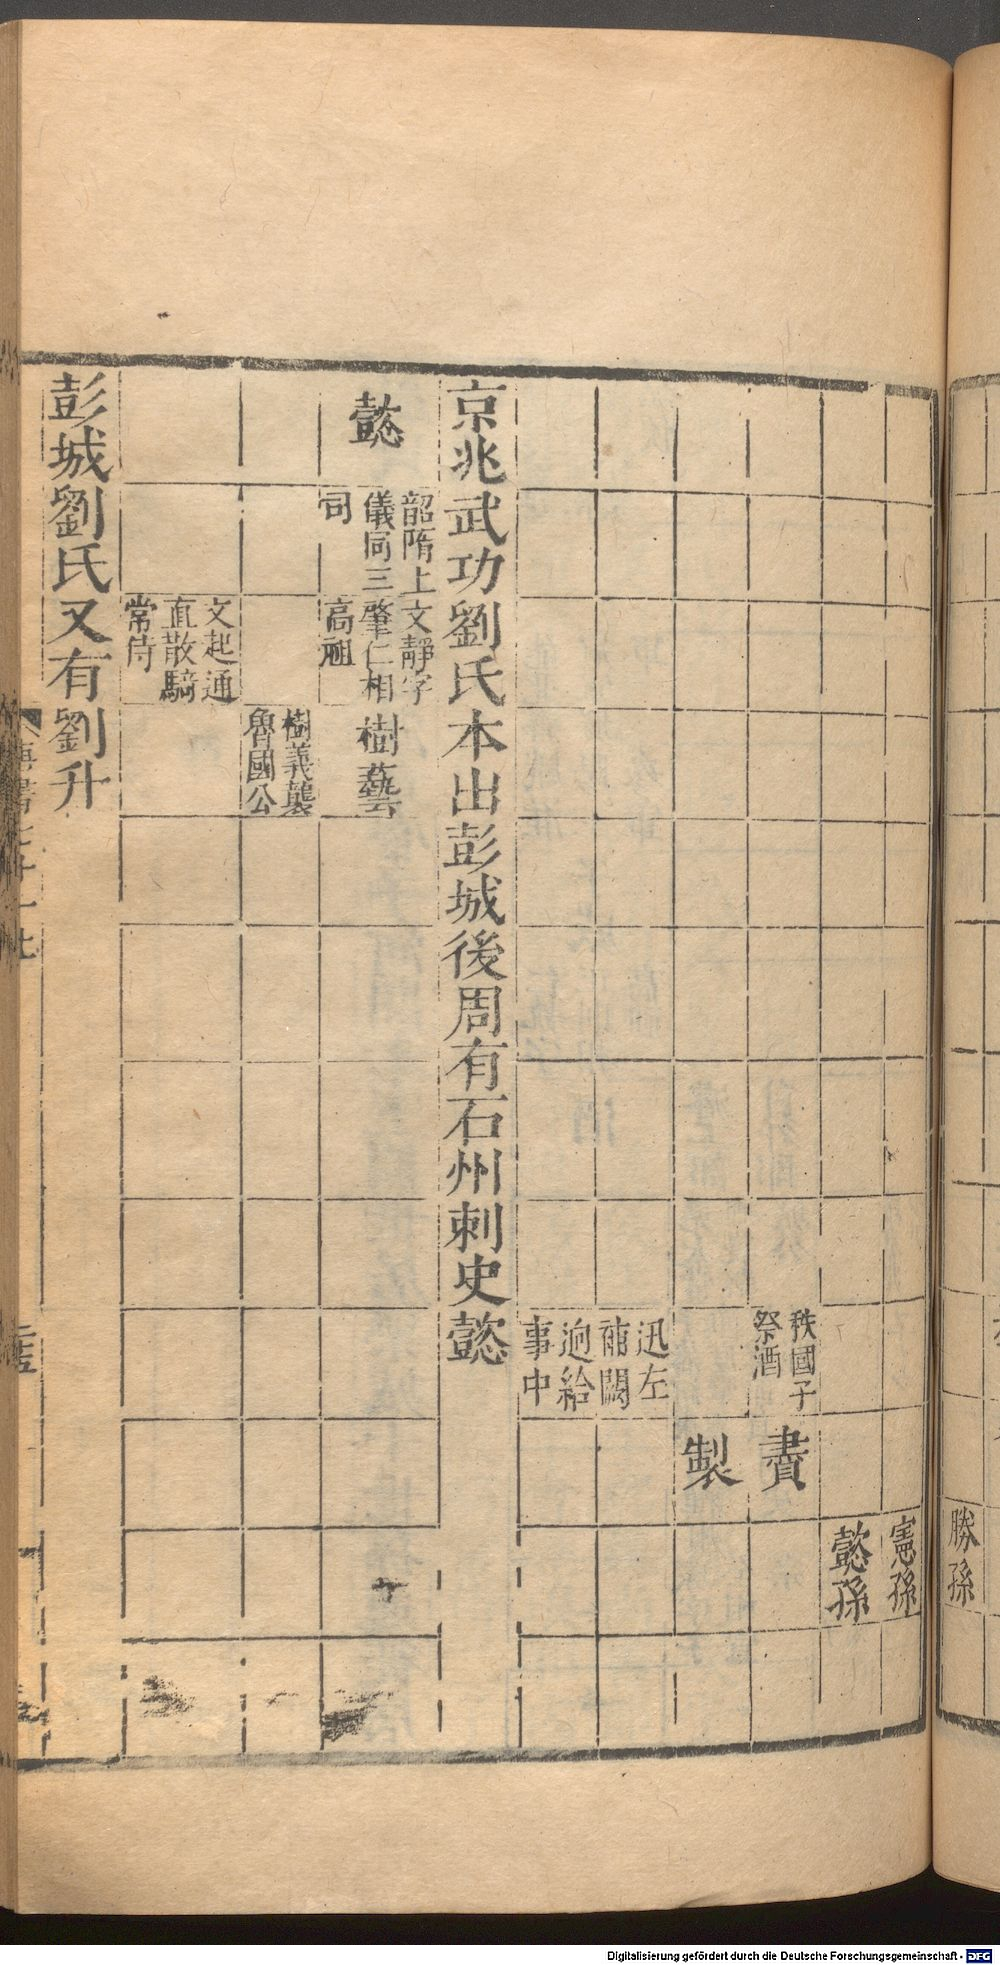 勝孫
憲孫
懿孫
秩國子
祭酒
賁
製
迅左
補闕
逈給
事中
京兆武功劉氏本出彭城後周有石州刺史懿
懿
韶隋上
儀同三
司
文靜字
肇仁相
高祖
樹藝
樹義襲
魯國公
文起通
直散騎
常侍
彭城劉氏又有劉升
Digitalisierung gefördert durch die Deutsche Forschungsgemeinschaft - DFG